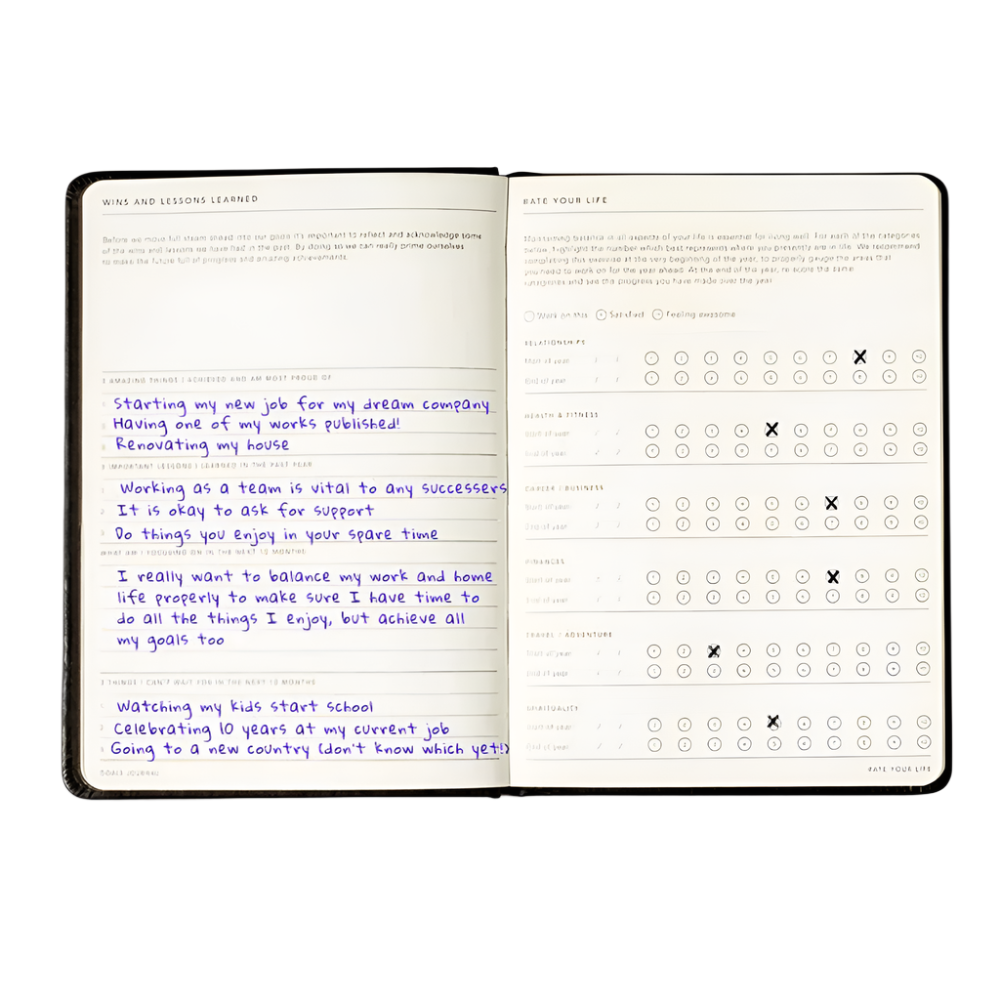 WINS AND LESSONS LEARNED
Before we move full steam ahead into our goals it's important to reflect and acknowledge some
of the wins and lessons we have had in the past. By doing so we can really prime ourselves
to make the future full of progress and amazing achievements.
3 AMAZING THINGS I ACHIEVED AND AM MOST PROUD OF
Starting my new job for my dream company
Having one of my works published!
Renovating my house
3 IMPORTANT LESSONS I LEARNED IN THE PAST YEAR
Working as a team is vital to any successers
2 It is okay to ask for support
3 Do things you enjoy in your spare time
WHAT AM I FOCUSING ON IN THE NEXT 12 MONTHS
I really want to balance my work and home
life properly to make sure I have time to
do all the things I enjoy, but achieve all
my goals too
3 THINGS I CAN'T WAIT FOR IN THE NEXT 12 MONTHS
Watching my kids start school
Celebrating 10 years at my current job
Going to a new country (don't know which yet!)
GOALS JOURNAL
RATE YOUR LIFE
Maintaining balance in all aspects of your life is essential for living well. For each of the categories
below, highlight the number which best represents where you presently are in life. We recommend
completing this exercise at the very beginning of the year, to properly gauge the areas that
you need to work on for the year ahead. At the end of the year, re-score the same
categories and see the progress you have made over the year.
Work on this Satisfied Feeling awesome
RELATIONSHIPS
Start of year / /
End of year / /
HEALTH & FITNESS
Start of year / /
End of year / /
CAREER / BUSINESS
Start of year / /
End of year / /
FINANCES
Start of year / /
End of year / /
TRAVEL / ADVENTURE
Start of year / /
End of year / /
SPIRITUALITY
Start of year / /
End of year / /
RATE YOUR LIFE